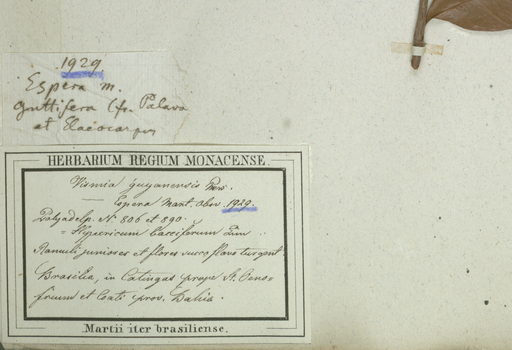 1929
Espera m.
guttifera (fr. Palava
et Elaeocarpus
HERBARIUM REGIUM MONACENSE.
Vismia guyanensis Pers.
— Espera Mart. Obs. 1929.
Polyadelp. N. 806 et 890.
= Hypericum bacciferum Lin
Ramuli juniores et flores succo flavo turgent.
Brasilia, in Catingas prope
et Coati prov. Bahia.
Martii iter brasiliense.